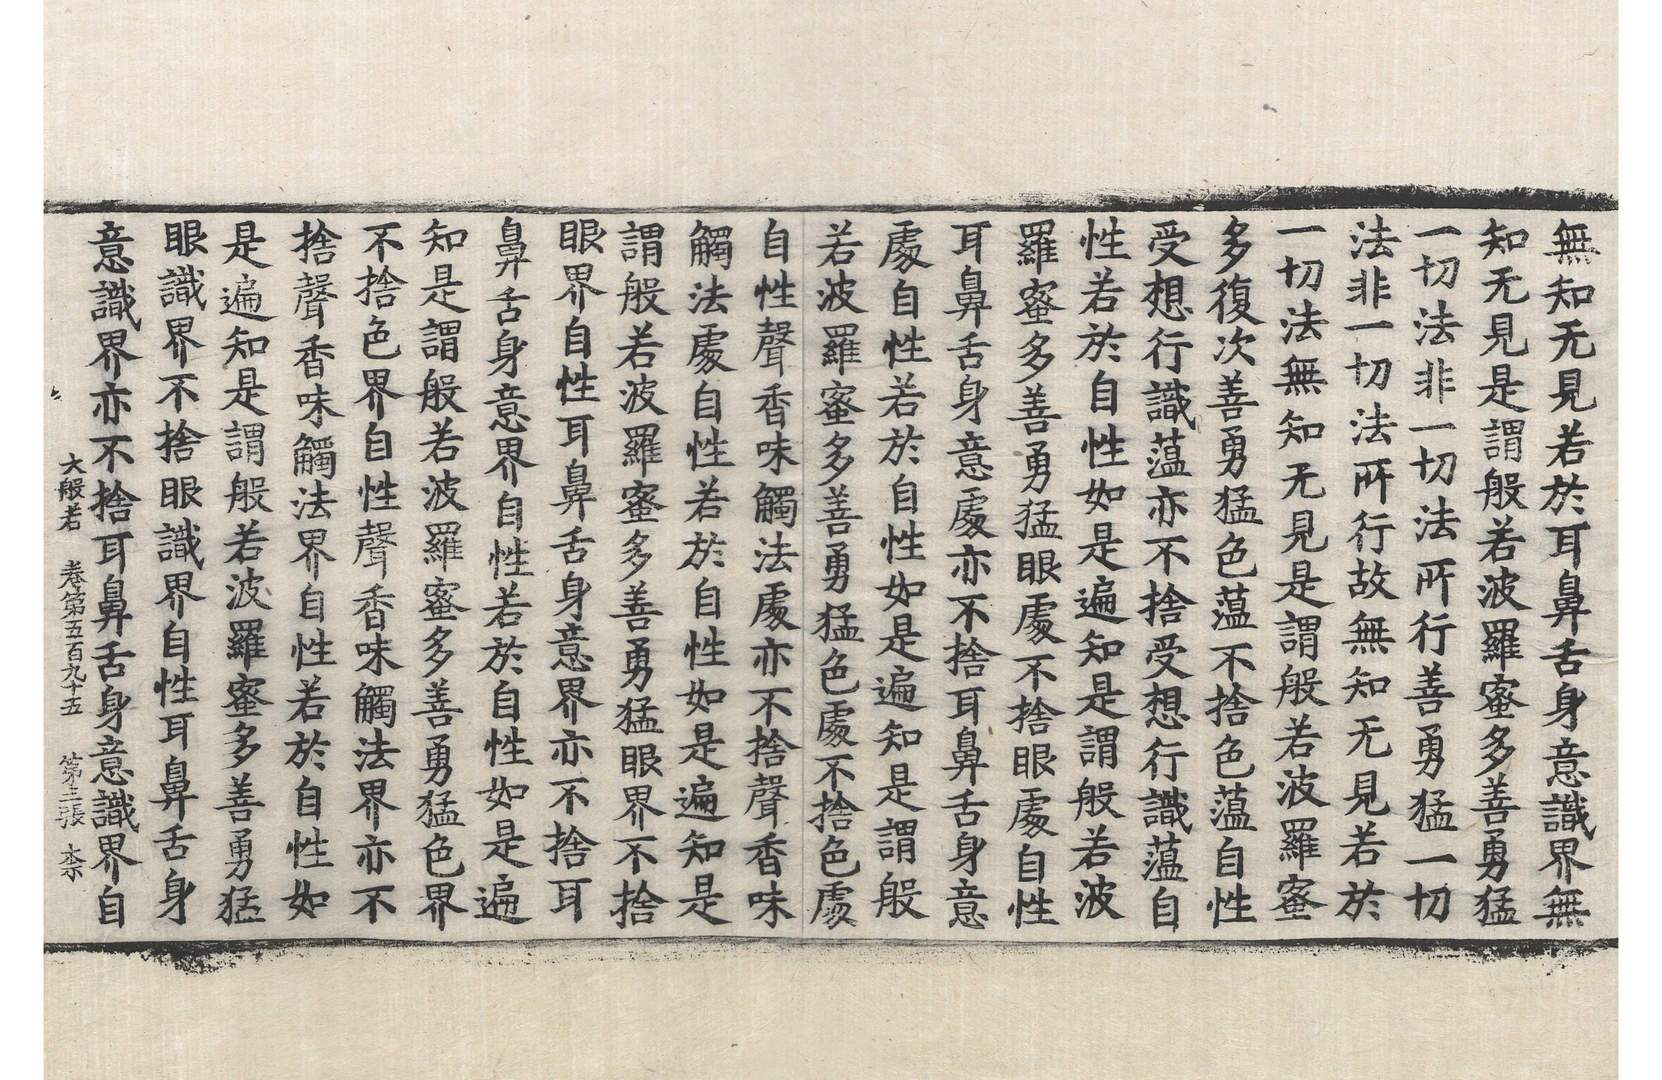 無知无見若於耳鼻舌身意識界無
知无見是謂般若波羅蜜多善勇猛
一切法非一切法所行善勇猛一切
法非一切法所行故無知无見若於
一切法無知无見是謂般若波羅蜜
多復次善勇猛色薀不捨色薀自性
受想行識薀亦不捨受想行識薀自
性若於自性如是遍知是謂般若波
羅蜜多善勇猛眼處不捨眼處自性
耳鼻舌身意處亦不捨耳鼻舌身意
處自性若於自性如是遍知是謂般
若波羅蜜多善勇猛色處不捨色處
自性聲香味觸法處亦不捨聲香味
觸法處自性若於自性如是遍知是
謂般若波羅蜜多善勇猛眼界不捨
眼界自性耳鼻舌身意界亦不捨耳
鼻舌身意界自性若於自性如是遍
知是謂般若波羅蜜多善勇猛色界
不捨色界自性聲香味觸法界亦不
捨聲香味觸法界自性若於自性如
是遍知是謂般若波羅蜜多善勇猛
眼識界不捨眼識界自性耳鼻舌身
意識界亦不捨耳鼻舌身意識界自
大般若 卷第五百九十五 第三張 柰